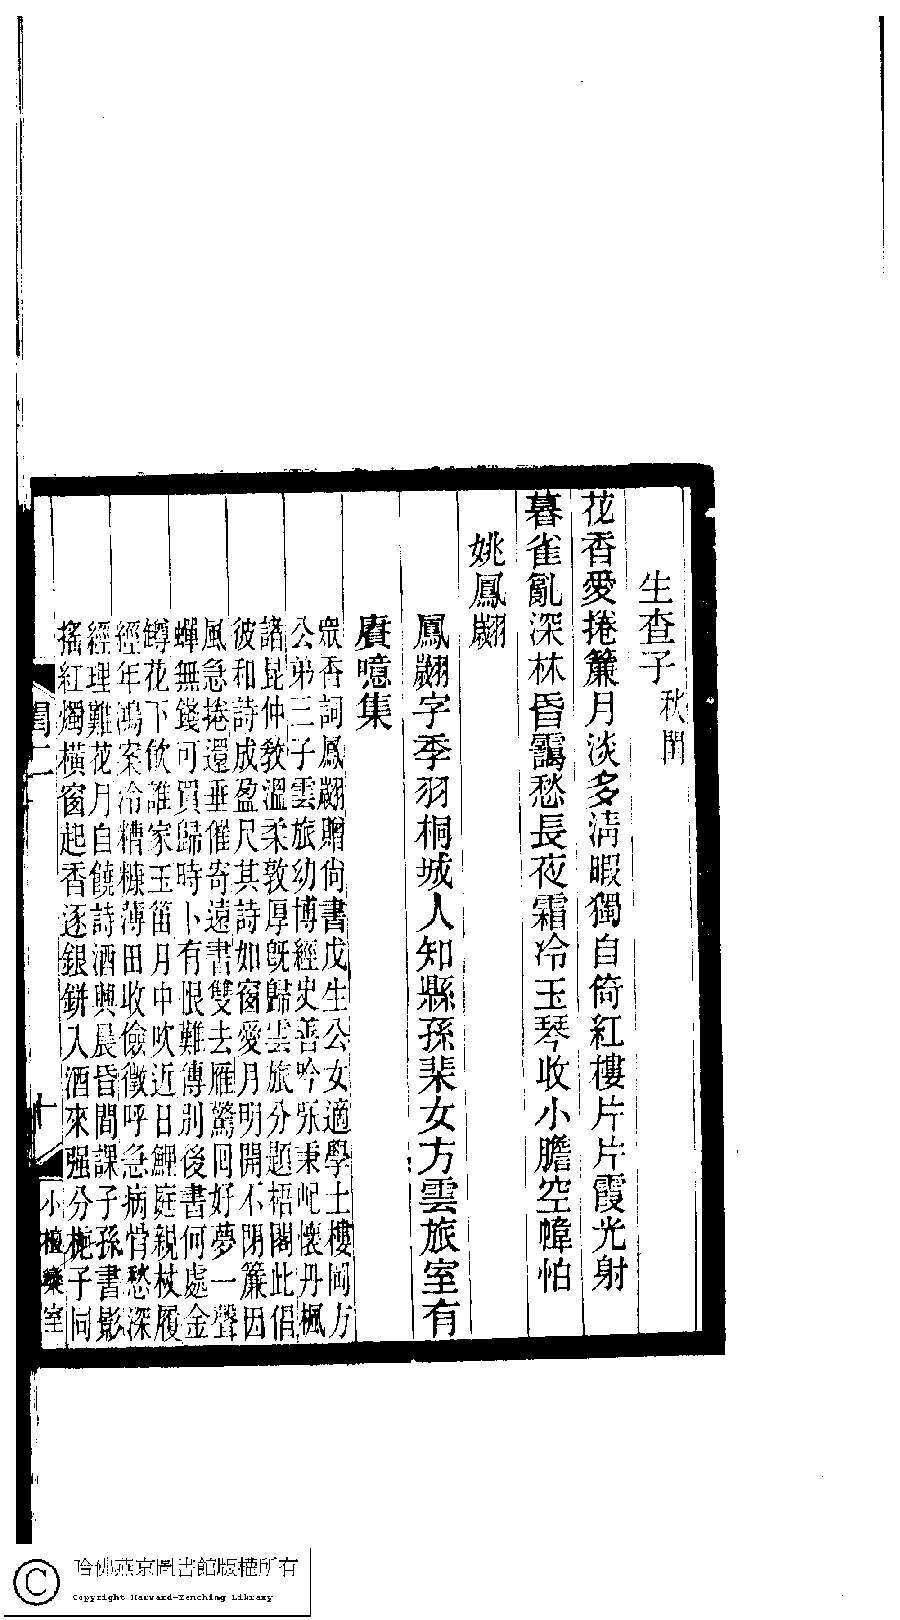 生查子 秋閨
花香愛捲簾月淡多淸暇獨自倚紅樓片片霞光射
暮雀亂深林昏靄愁長夜霜冷玉琴收小膽空幃怕
姚鳳翽
鳳翽字季羽桐城人知縣孫棐女方雲旅室有
賡噫集
衆香詞鳳翽贈尙書戊生公女適學士樓岡方
公弟三子雲旅幼博經史善吟乐秉屺懷丹楓
諸昆仲敎溫柔敦厚旣歸雲旅分題梧閣此倡
彼和詩成盈尺其詩如窗愛月明開不閉簾因
風急捲還垂催寄遠書雙去雁驚回好夢一聲
蟬無錢可買歸時卜有恨難傳别後書何處金
罇花下飮誰家玉笛月中吹近日鯉庭親杖履
經年鴻案冷糟糠薄田收儉徵呼急病骨愁深
經理難花月自饒詩酒興晨昏間課子孫書影
搖紅燭橫窗起香逐銀鉼入酒來强分梔子同
閨二
十
小檀欒室
哈佛燕京圖書館版權所有
Copyright Harvard-Yenching Library